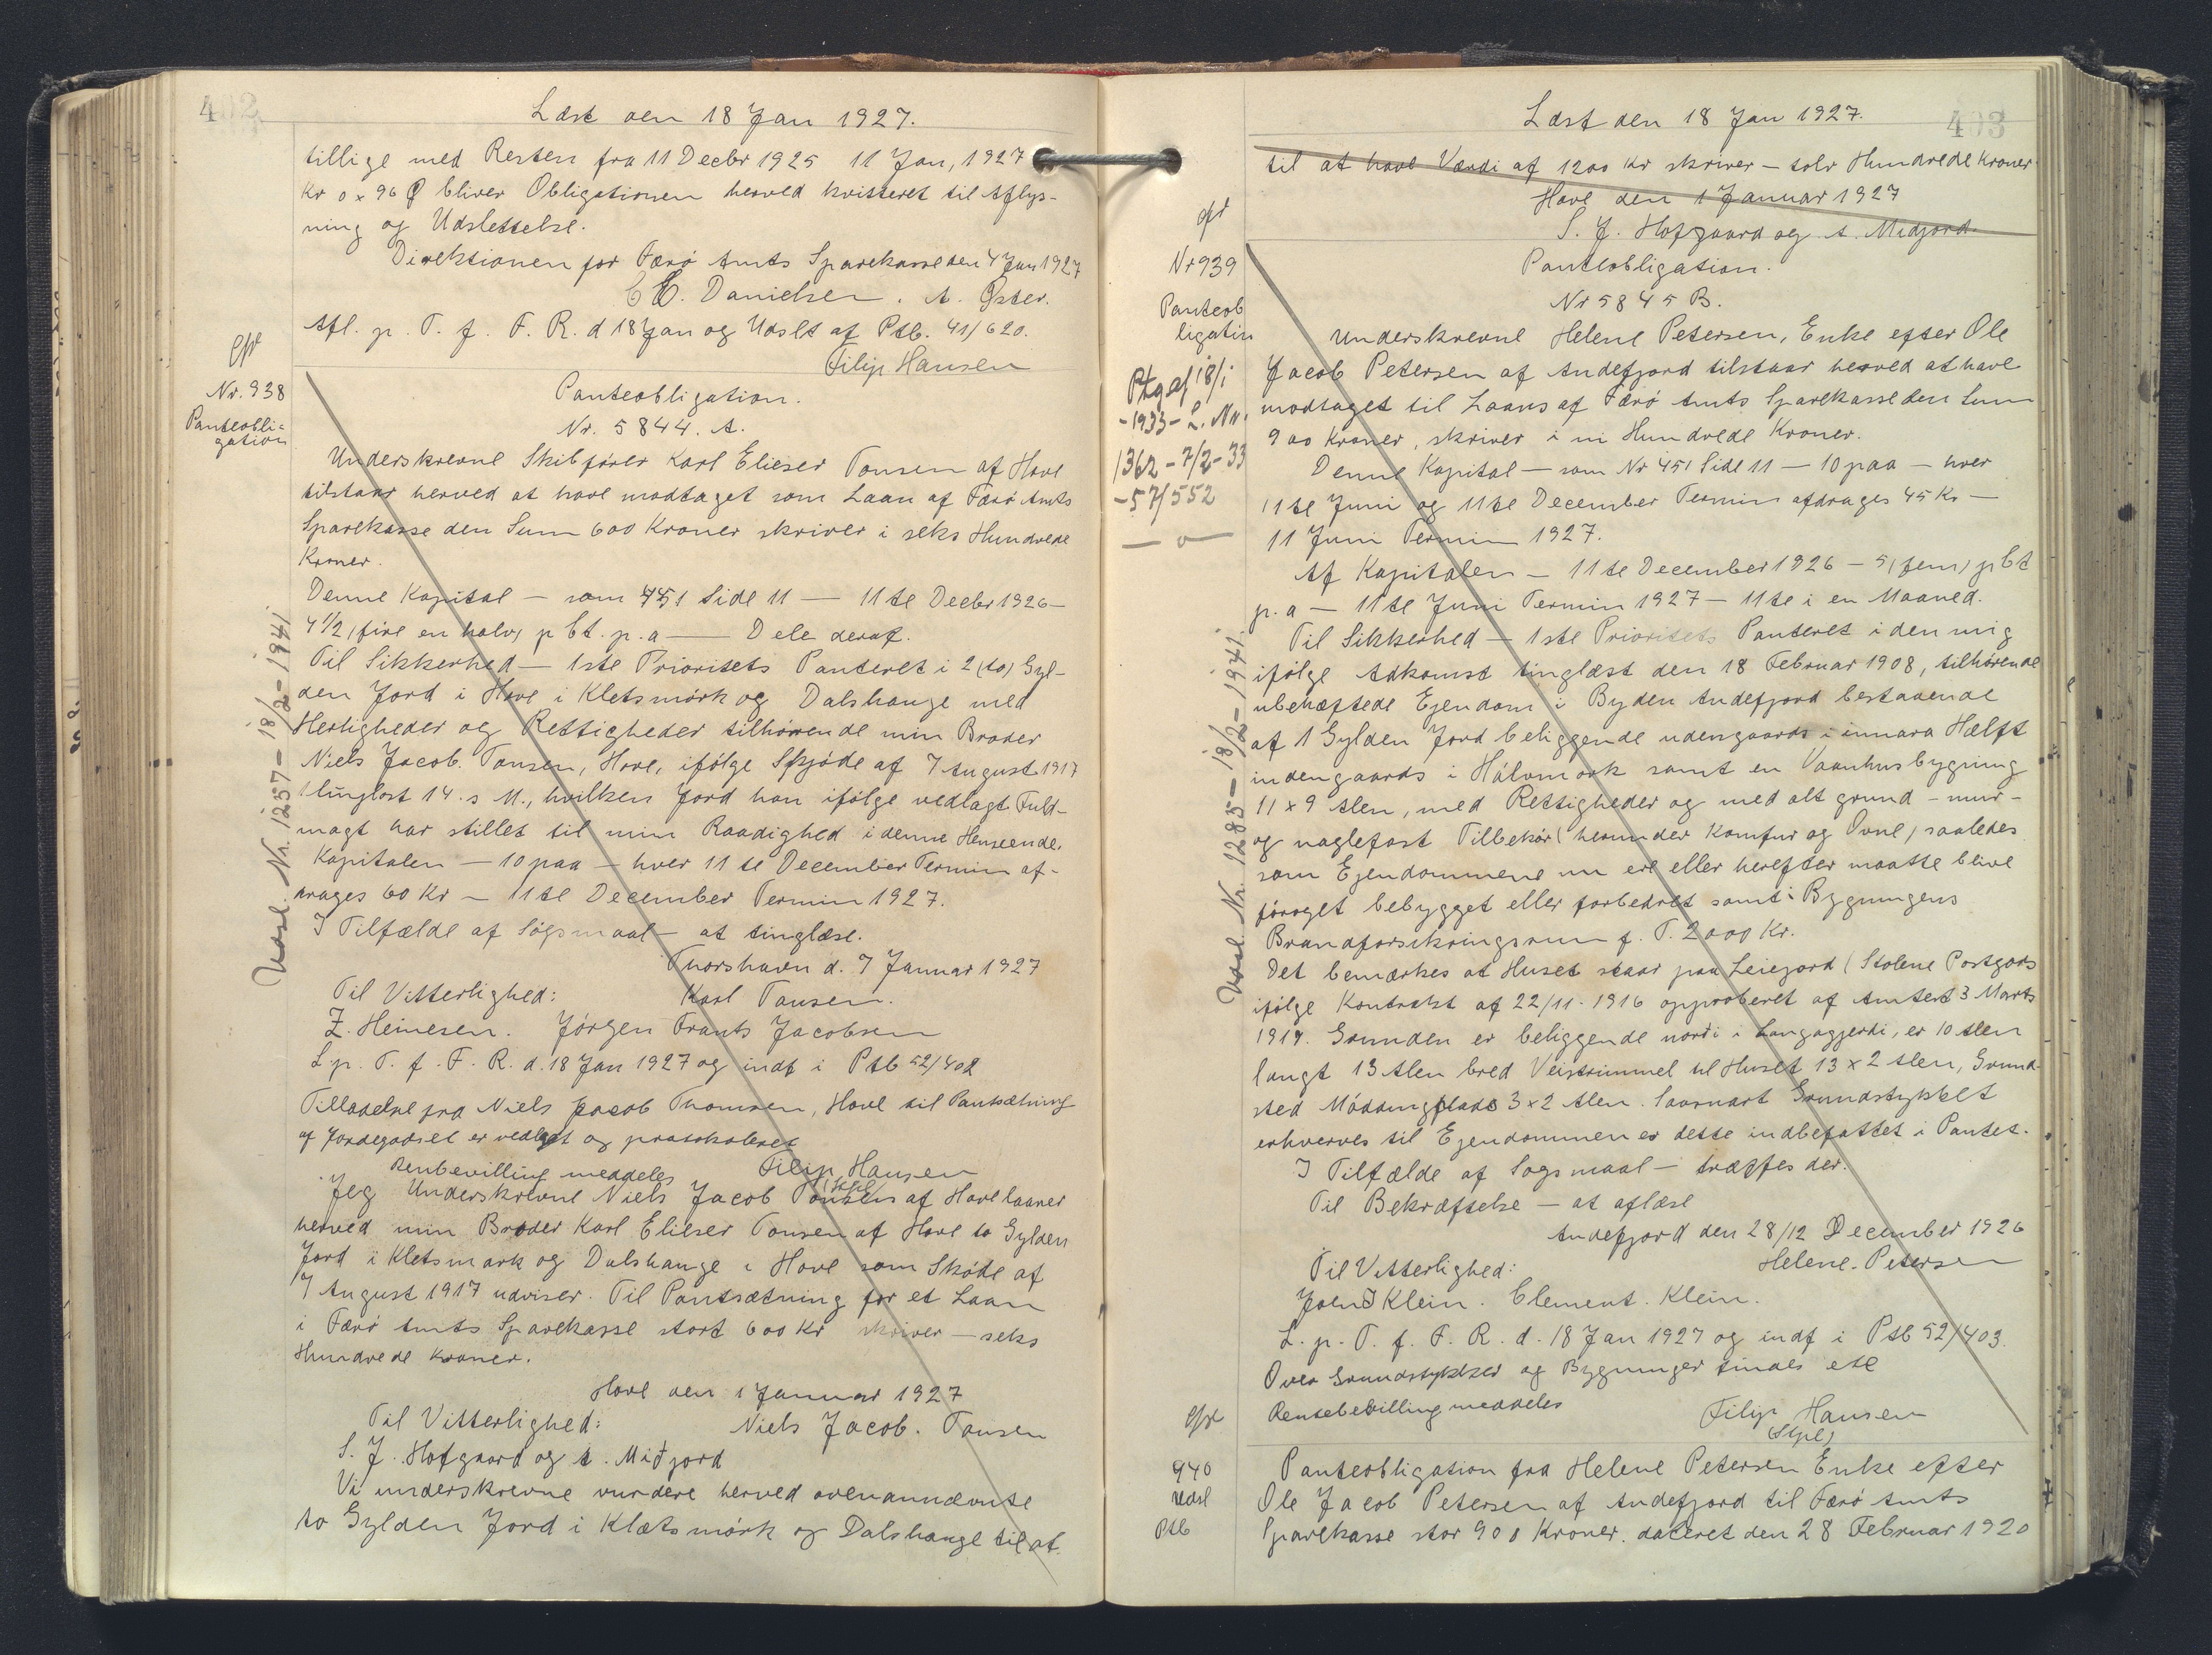 402
Læst den 18 Jan 1927.
tillige med Resten fra 11 Decbr 1925 11 Jan, 1927
Kr 0 x 96 Ø bliver Obligationen herved kvitteret til Aflys-
ning og Udslettelse.
Direktionen for Færø Amts Sparekasse den 4 Jan 1927
C. Danielsen. A. Øster.
Afl. p. T. f. F. R. d 18 Jan og Udslt af Ptb. 41/620.
Filip Hansen
Nr. 938
Panteobli-
gation
Panteobligation.
Nr. 5844. A.
Underskrevne Skibfører Karl Elieser Tausen af Hove
tilstaar herved at have modtaget som Laan af Færø Amts
Sparekasse den Sum 600 Kroner skriver i seks Hundrede
Kroner.
Denne Kapital — som 451 Side 11 — 11te Decbr 1926 —
4 1/2 (fire en halv) p Ct. p. a — Dele deraf.
Til Sikkerhed — 1ste Prioritets Panteret i 2 (to) Gyl-
den Jord i Hove i Kletsmörk og Dalshauge med
Herligheder og Rettigheder tilhörende min Broder
Niels Jacob. Tausen, Hove, ifölge Skjöde af 7 August 1917
tinglæst 14. s M., hvilken Jord han ifölge vedlagt Fuld-
magt har stillet til min Raadighed i denne Henseende.
Kapitalen — 10 paa — hver 11te December Termin af-
drages 60 Kr — 11te December Termin 1927.
I Tilfælde af Sögsmaal — at tinglæse.
Thorshavn d. 7 Januar 1927
Til Vitterlighed: Karl Tausen.
Z. Heinesen. Jörgen Frants Jacobsen
L. p. T. f. F. R. d. 18 Jan 1927 og indf i Ptb 52/402
Tilladelse fra Niels Jacob Thomsen, Hove til Pantsætning
af Jordegodset er vedlagt og protokoleret
Rentbevilling meddeles Filip Hansen
Jeg Underskrevne Niels Jacob Tausen af Hove laaner
herved min Broder Karl Elieser Tausen af Hove to Gylden
Jord i Kletsmark og Dalshauge i Hove som Sköde af
7 August 1917 udviser. Til Pantsætning for et Laan
i Færö Amts Sparekasse stort 600 Kr skriver — seks
Hundrede Kroner.
Hove den 1 Januar 1927
Til Vitterlighed: Niels Jacob. Tausen
S. J. Hofgaard og A. Midjord
Vi underskrevne vurdere herved ovenannævnte
to Gylden Jord i Klætsmörk og Dalshauge til at.
Udsl. Nr. 1257 — 18/2 — 1941
403
Læst den 18 Jan 1927.
til at have Værdi af 1200 Kr skriver — tolv Hundrede Kroner
Hove den 1 Januar 1927
S. J. Hofgaard og A. Midjord.
Nr 939
Panteob
ligatin
Ptgaf 18/1
-1933- L. Nr.
1362 - 7/2 - 33
- 57/552
— o —
Panteobligation.
Nr 5845 B.
Underskrevne Helene Petersen, Enke efter Ole
Jacob Petersen af Andefjord tilstaar herved at have
modtaget til Laans af Færö Amts Sparekasse den Sum
900 Kroner, skriver i ni Hundrede Kroner.
Denne Kapital — som Nr 451 Side 11 — 10 paa — hver
11te Juni og 11te December Termin afdrages 45 Kr —
11 Juni Termin 1927.
Af Kapitalen — 11te December 1926 — 5 (fem) p Ct
p. a — 11te Juni Termin 1927 — 11te i en Maaned.
Til Sikkerhed — 1ste Prioritets Panteret i den mig
ifölge Adkomst tinglæst den 18 Februar 1908, tilhörende
ubehæftede Ejendom i Byden Andefjord bestaaende
af 1 Gylden Jord beliggende udengaards i innara Hælft
indengaards i Hálvmörk samt en Vaanhusbygning
11 x 9 Alen, med Rettigheder og med alt grund - mur -
og naglefast Tilbehör (herunder Komfur og Ovne) saaledes
som Ejendommene nu ere eller herefter maatte blive
föröget bebygget eller forbedret samt i Bygningens
Brandforsikringssum p. T. 2000 Kr.
Det bemærkes at Huset staar paa Leiejord (Stolene Postgods
ifölge Kontrakt af 22/11 - 1916 approberet af Amtet 3 Marts
1917. Grunden er beliggende nordi i Langagjerdi, er 10 Alen
langt 13 Alen bred Veistrimmel til Huset 13 x 2 Alen, Grund-
sted Móddingplads 3 x 2 Alen. Saasnart Grundstykket
erhverves til Ejendommen er dette indbefattet i Pantet.
I Tilfælde af Sogsmaal — træffes der.
Til Bekræftelse — at aflæse
Andefjord den 28/12 December 1926
Til Vitterlighed: Helene. Petersen
Klein. Clement. Klein.
L. p. T. f. F. R. d. 18 Jan 1927 og indf i Ptb 52/403.
Over Grundstykker og Bygninger findes ett
Rentebevilling meddeles Filip Hansen
Udsl. Nr. 1285 — 18/2 — 1941.
940
Udsl
Ptb
Panteobligation fra Helene Petersen Enke efter
Ole Jacob Petersen af Andefjord til Færö Amts
Sparekasse stor 900 Kroner. dateret den 28 Februar 1920